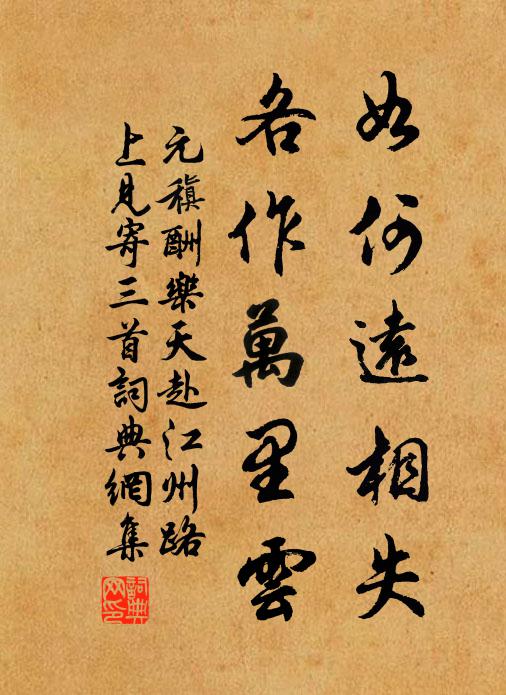 如何遠相失
各作萬里雲
元稹酬樂天赴江州路
上見寄三首詞典網集
詞典網印